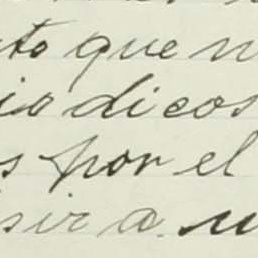 to que n
iodicos
s por el
sir a u